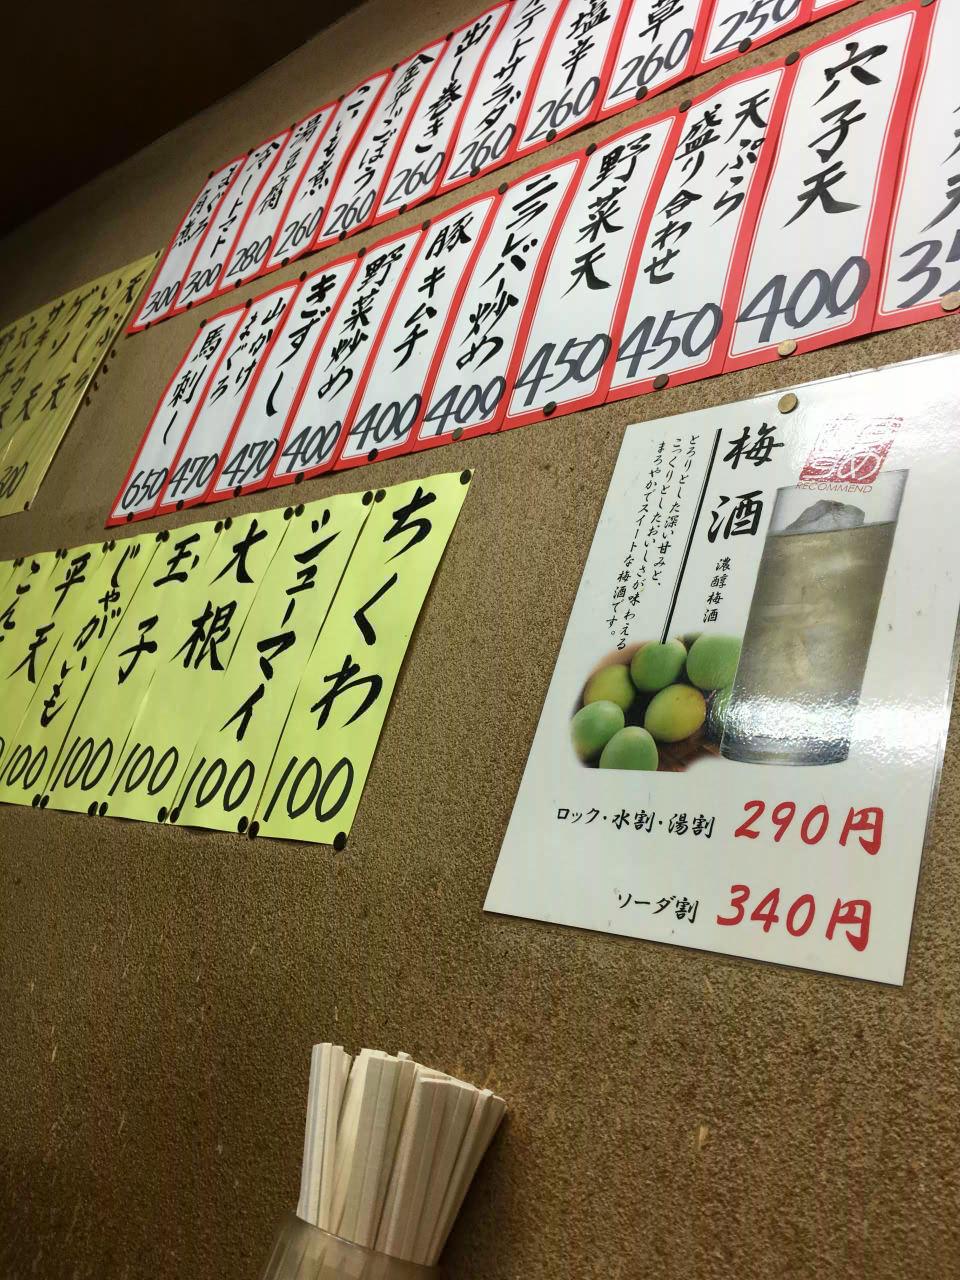 250
草
260
塩辛
260
テトサラダ
260
出し巻き
260
金平ごぼう
260
煮
260
湯豆腐
280
冷しトマト
300
まぐろ
角煮
300
穴子天
400
天ぷら
盛り合わせ
450
野菜天
450
ニラレバー炒め
400
豚キムチ
400
野菜炒め
400
きずし
470
まぐろ
山かけ
470
馬刺し
650
天
300
ちくわ
100
シューマイ
100
大根
100
玉子
100
じゃがいも
100
平天
100
RECOMMEND
梅酒
濃醇梅酒
とろりとした深い甘みと、
こっくりとしたおいしさが味わえる
まろやかでスイートな梅酒です。
ロック・水割・湯割 290円
ソーダ割 340円